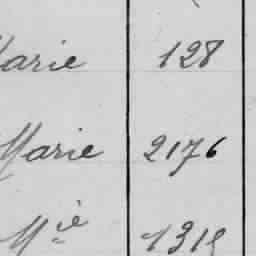 Marie 128
Marie 2176
Mie 1315